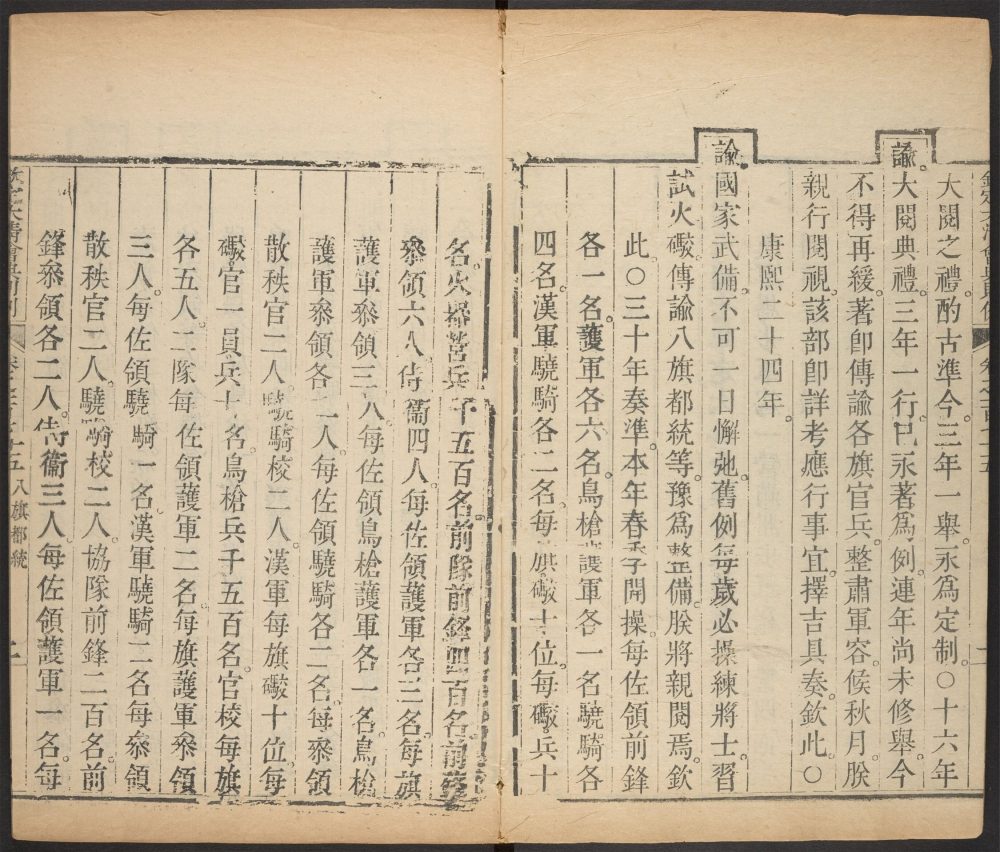 大閱之禮酌古準今三年一舉永爲定制〇十六年
諭大閱典禮三年一行已永著爲例連年尚未修舉今
不得再緩著卽傳諭各旗官兵整肅軍容候秋月朕
親行閱視該部卽詳考應行事宜擇吉具奏欽此〇
康熙二十四年
諭國家武備不可一日懈弛舊例每歲必操練將士習
試火礮傳諭八旗都統等豫爲整備朕將親閱焉欽
此〇三十年奏準本年春季開操每佐領前鋒
各一名護軍各六名鳥槍護軍各一名驍騎各
四名漢軍驍騎各二名每旗礮十位每礮兵十
名火器營兵千五百名前隊前鋒四百名前鋒
叅領六人侍衞四人每佐領護軍各三名每旗
護軍叅領三人每佐領鳥槍護軍各一名鳥槍
護軍叅領各一人每佐領驍騎各二名每叅領
散秩官二人驍騎校二人漢軍每旗礮十位每
礮官一員兵十名鳥槍兵千五百名官校每旗
各五人二隊每佐領護軍二名每旗護軍叅領
三人每佐領驍騎一名漢軍驍騎二名每叅領
散秩官二人驍騎校二人協隊前鋒二百名前
鋒叅領各二人侍衞三人每佐領護軍一名每
八旗都統